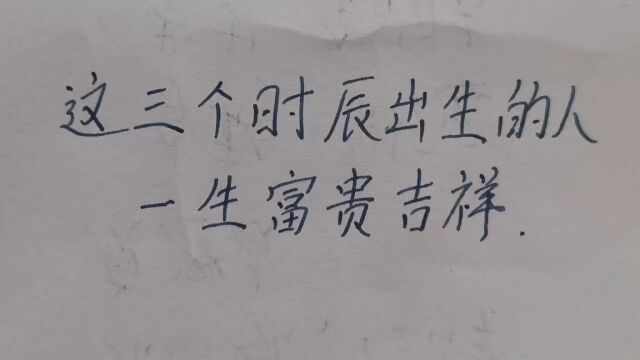 这三个时辰出生的人
一生富贵吉祥.